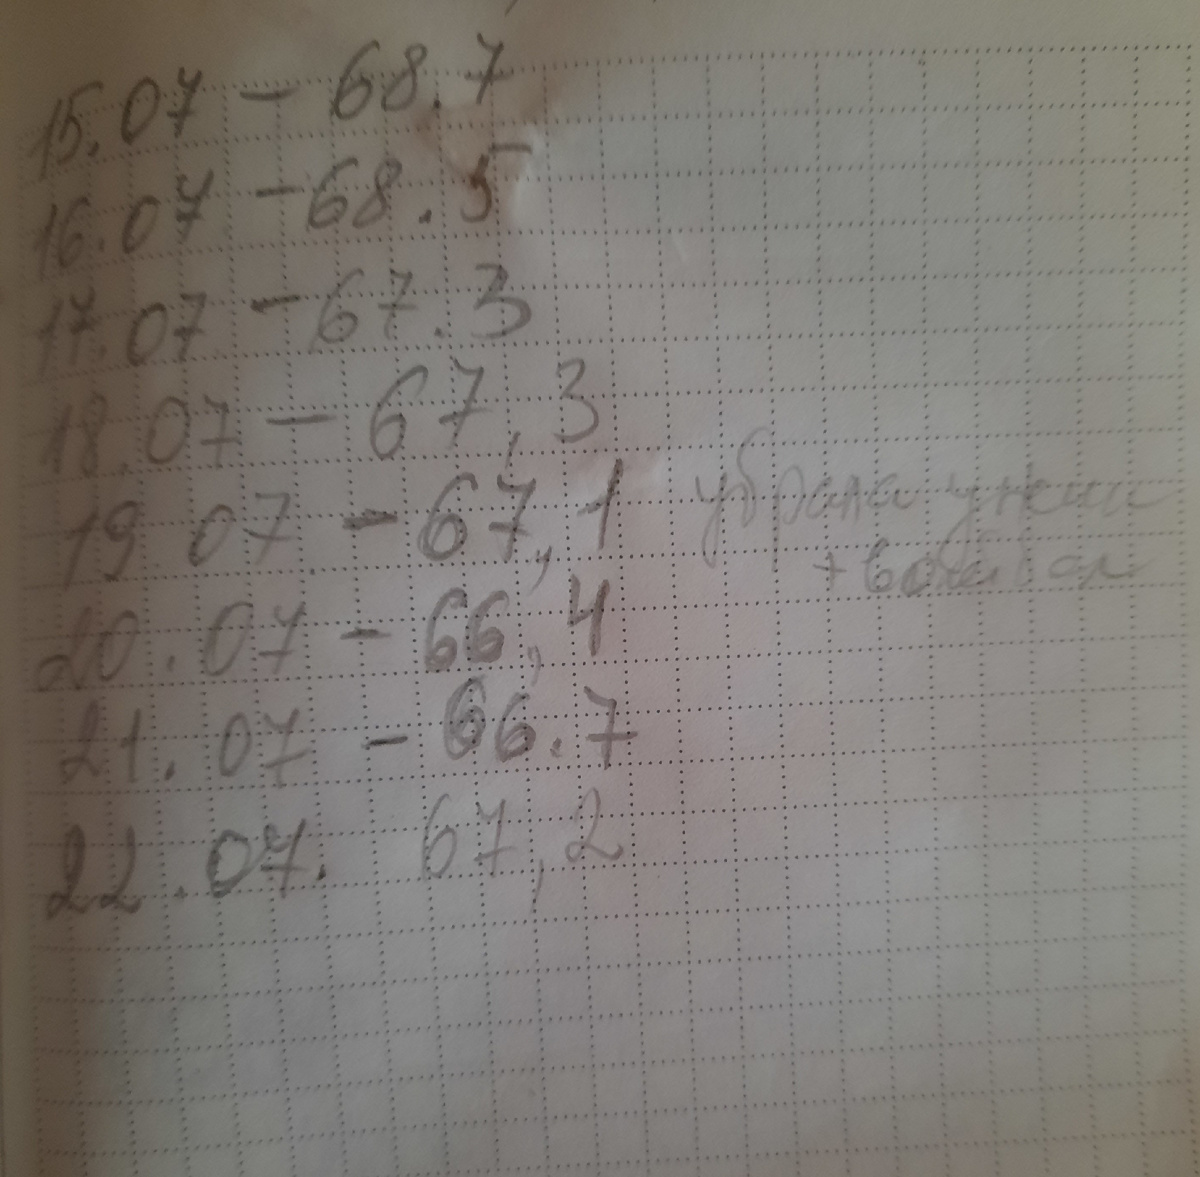 15.07 - 68.7
16.07 - 68.5
17.07 - 67.3
18.07 - 67,3
19.07 - 67,1 убрала ужин
20.07 - 66,4
21.07 - 66.7
22.07. 67,2